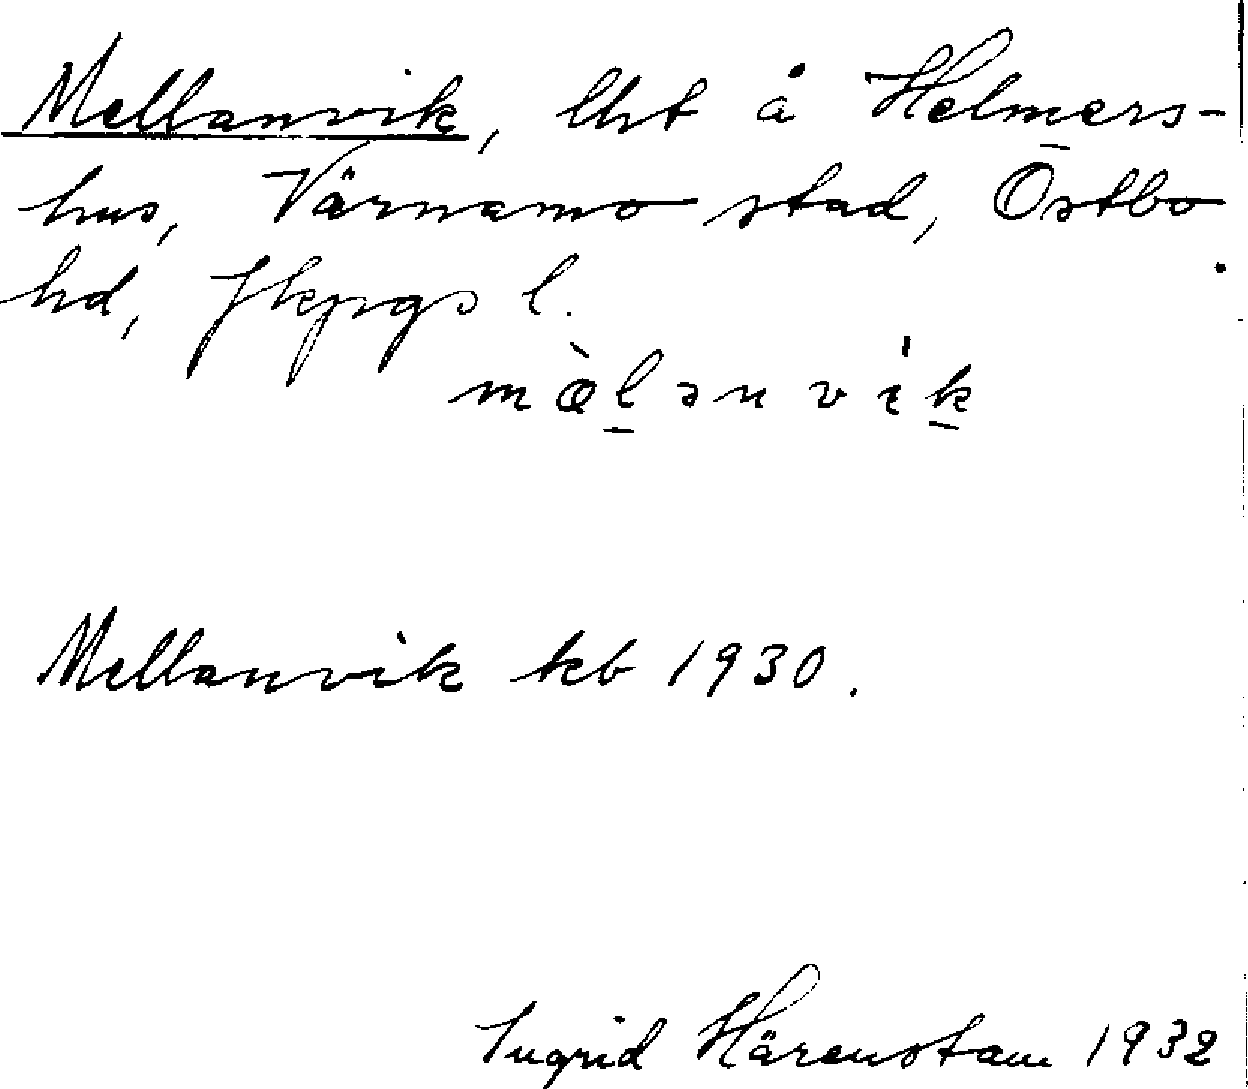 Mellanvik, lht å Helmers-
hus, Värnamo stad, Östbo
hd, Jkpgs l.
mæ̀l̲ən vík̲
Mellanvik kb 1930.
Ingrid Härenstam 1932